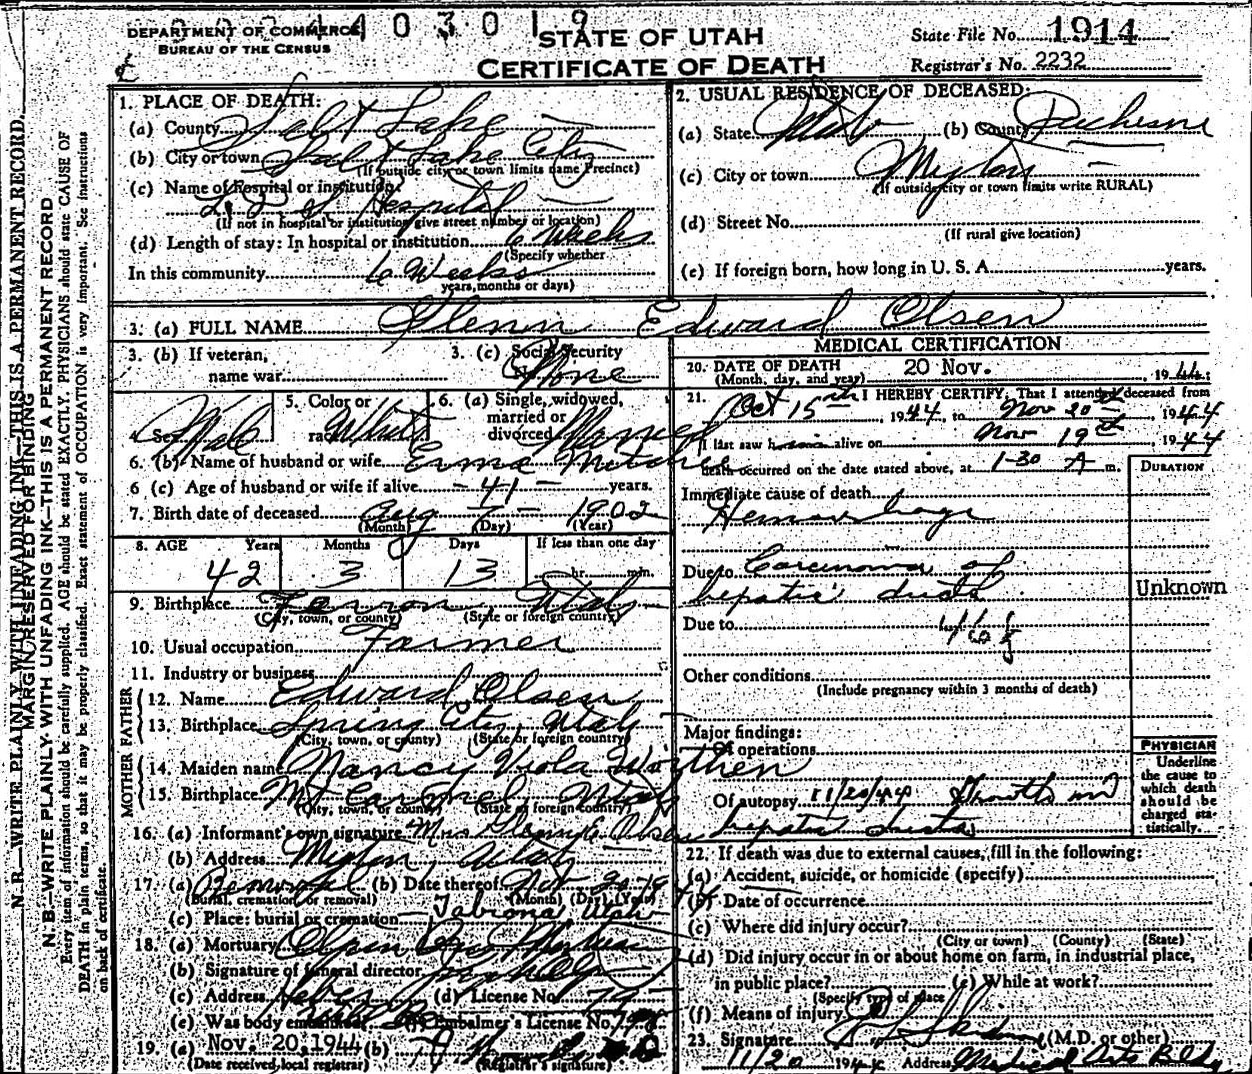 DEPARTMENT OF COMMERCE
BUREAU OF THE CENSUS
4 0 3 0 1 9
STATE OF UTAH
CERTIFICATE OF DEATH
State File No. 1914
Registrar's No. 2232
N. B.—WRITE PLAINLY WITH UNFADING INK—THIS IS A PERMANENT RECORD
MARGIN RESERVED FOR BINDING
N. B.—WRITE PLAINLY WITH UNFADING INK—THIS IS A PERMANENT RECORD
Every item of information should be carefully supplied. AGE should be stated EXACTLY. PHYSICIANS should state CAUSE OF
DEATH in plain terms, so that it may be properly classified. Exact statement of OCCUPATION is very important. See instructions
on back of certificate.
1. PLACE OF DEATH:
(a) County Salt Lake
(b) City or town Salt Lake City
(If outside city or town limits name Precinct)
(c) Name of hospital or institution:
L. D. S. Hospital
(If not in hospital or institution give street number or location)
(d) Length of stay: In hospital or institution 6 Weeks
(Specify whether
In this community 6 Weeks
years, months or days)
2. USUAL RESIDENCE OF DECEASED:
(a) State Utah (b) County Duchesne
(c) City or town Myton
(If outside city or town limits write RURAL)
(d) Street No.
(If rural give location)
(e) If foreign born, how long in U. S. A. years.
3. (a) FULL NAME Glenn Edward Olsen
3. (b) If veteran,
name war
3. (c) Social Security
No. None
4. Sex Male
5. Color or
race White
6. (a) Single, widowed,
married or
divorced Married
6. (b) Name of husband or wife Erma
6 (c) Age of husband or wife if alive - 41 - years.
7. Birth date of deceased Aug 7 - 1902
(Month) (Day) (Year)
8. AGE Years Months Days If less than one day
42 3 13 hr. min.
9. Birthplace Ferron Utah
(City, town, or county) (State or foreign country)
10. Usual occupation Farmer
11. Industry or business
FATHER
12. Name Edward Olsen
13. Birthplace Spring City, Utah
(City, town, or county) (State or foreign country)
MOTHER
14. Maiden name Nancy Viola Worthen
15. Birthplace Mt Carmel, Utah
(City, town, or county) (State or foreign country)
16. (a) Informant's own signature Mrs Glenn E. Olsen
(b) Address Myton, Utah
17. (a) Removal (b) Date thereof Nov 20 1944
(Burial, cremation or removal) (Month) (Day) (Year)
(c) Place: burial or cremation Tabiona, Utah
18. (a) Mortuary Olpin Bros Mortuary
(b) Signature of funeral director
(c) Address Heber (d) License No.
(e) Was body embalmed (f) Embalmer's License No.
19. (a) Nov. 20, 1944 (b)
(Date received local registrar) (Registrar's signature)
MEDICAL CERTIFICATION
20. DATE OF DEATH
(Month, day, and year) 20 Nov. , 1944;
21. I HEREBY CERTIFY, That I attended deceased from
Oct 15th , 1944, to Nov 20th , 1944
I last saw him alive on Nov 19th , 1944
death occurred on the date stated above, at 1-30 A m.
DURATION
Immediate cause of death
Hemorrhage
Due to Carcinoma of
hepatic ducts.
Unknown
Due to
Other conditions
(Include pregnancy within 3 months of death)
Major findings:
Of operations
Of autopsy 11/20/44 Growth in
hepatic ducts
PHYSICIAN
Underline
the cause to
which death
should be
charged sta-
tistically.
22. If death was due to external causes, fill in the following:
(a) Accident, suicide, or homicide (specify)
(b) Date of occurrence
(c) Where did injury occur?
(City or town) (County) (State)
(d) Did injury occur in or about home on farm, in industrial place,
in public place? (e) While at work?
(Specify type of place
(f) Means of injury
23. Signature (M.D. or other)
11/20 1944 Address Medical Arts Bldg